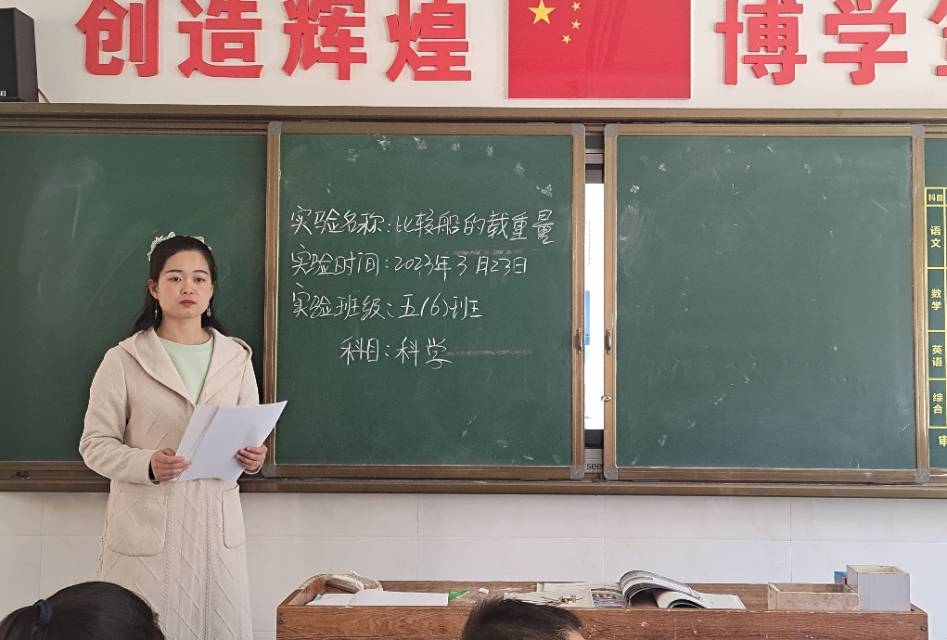 创造辉煌
博学
实验名称:比较船的载重量
实验时间:2023年3月23日
实验班级:五(6)班
科目:科学
科目
语文
数学
英语
综合
see